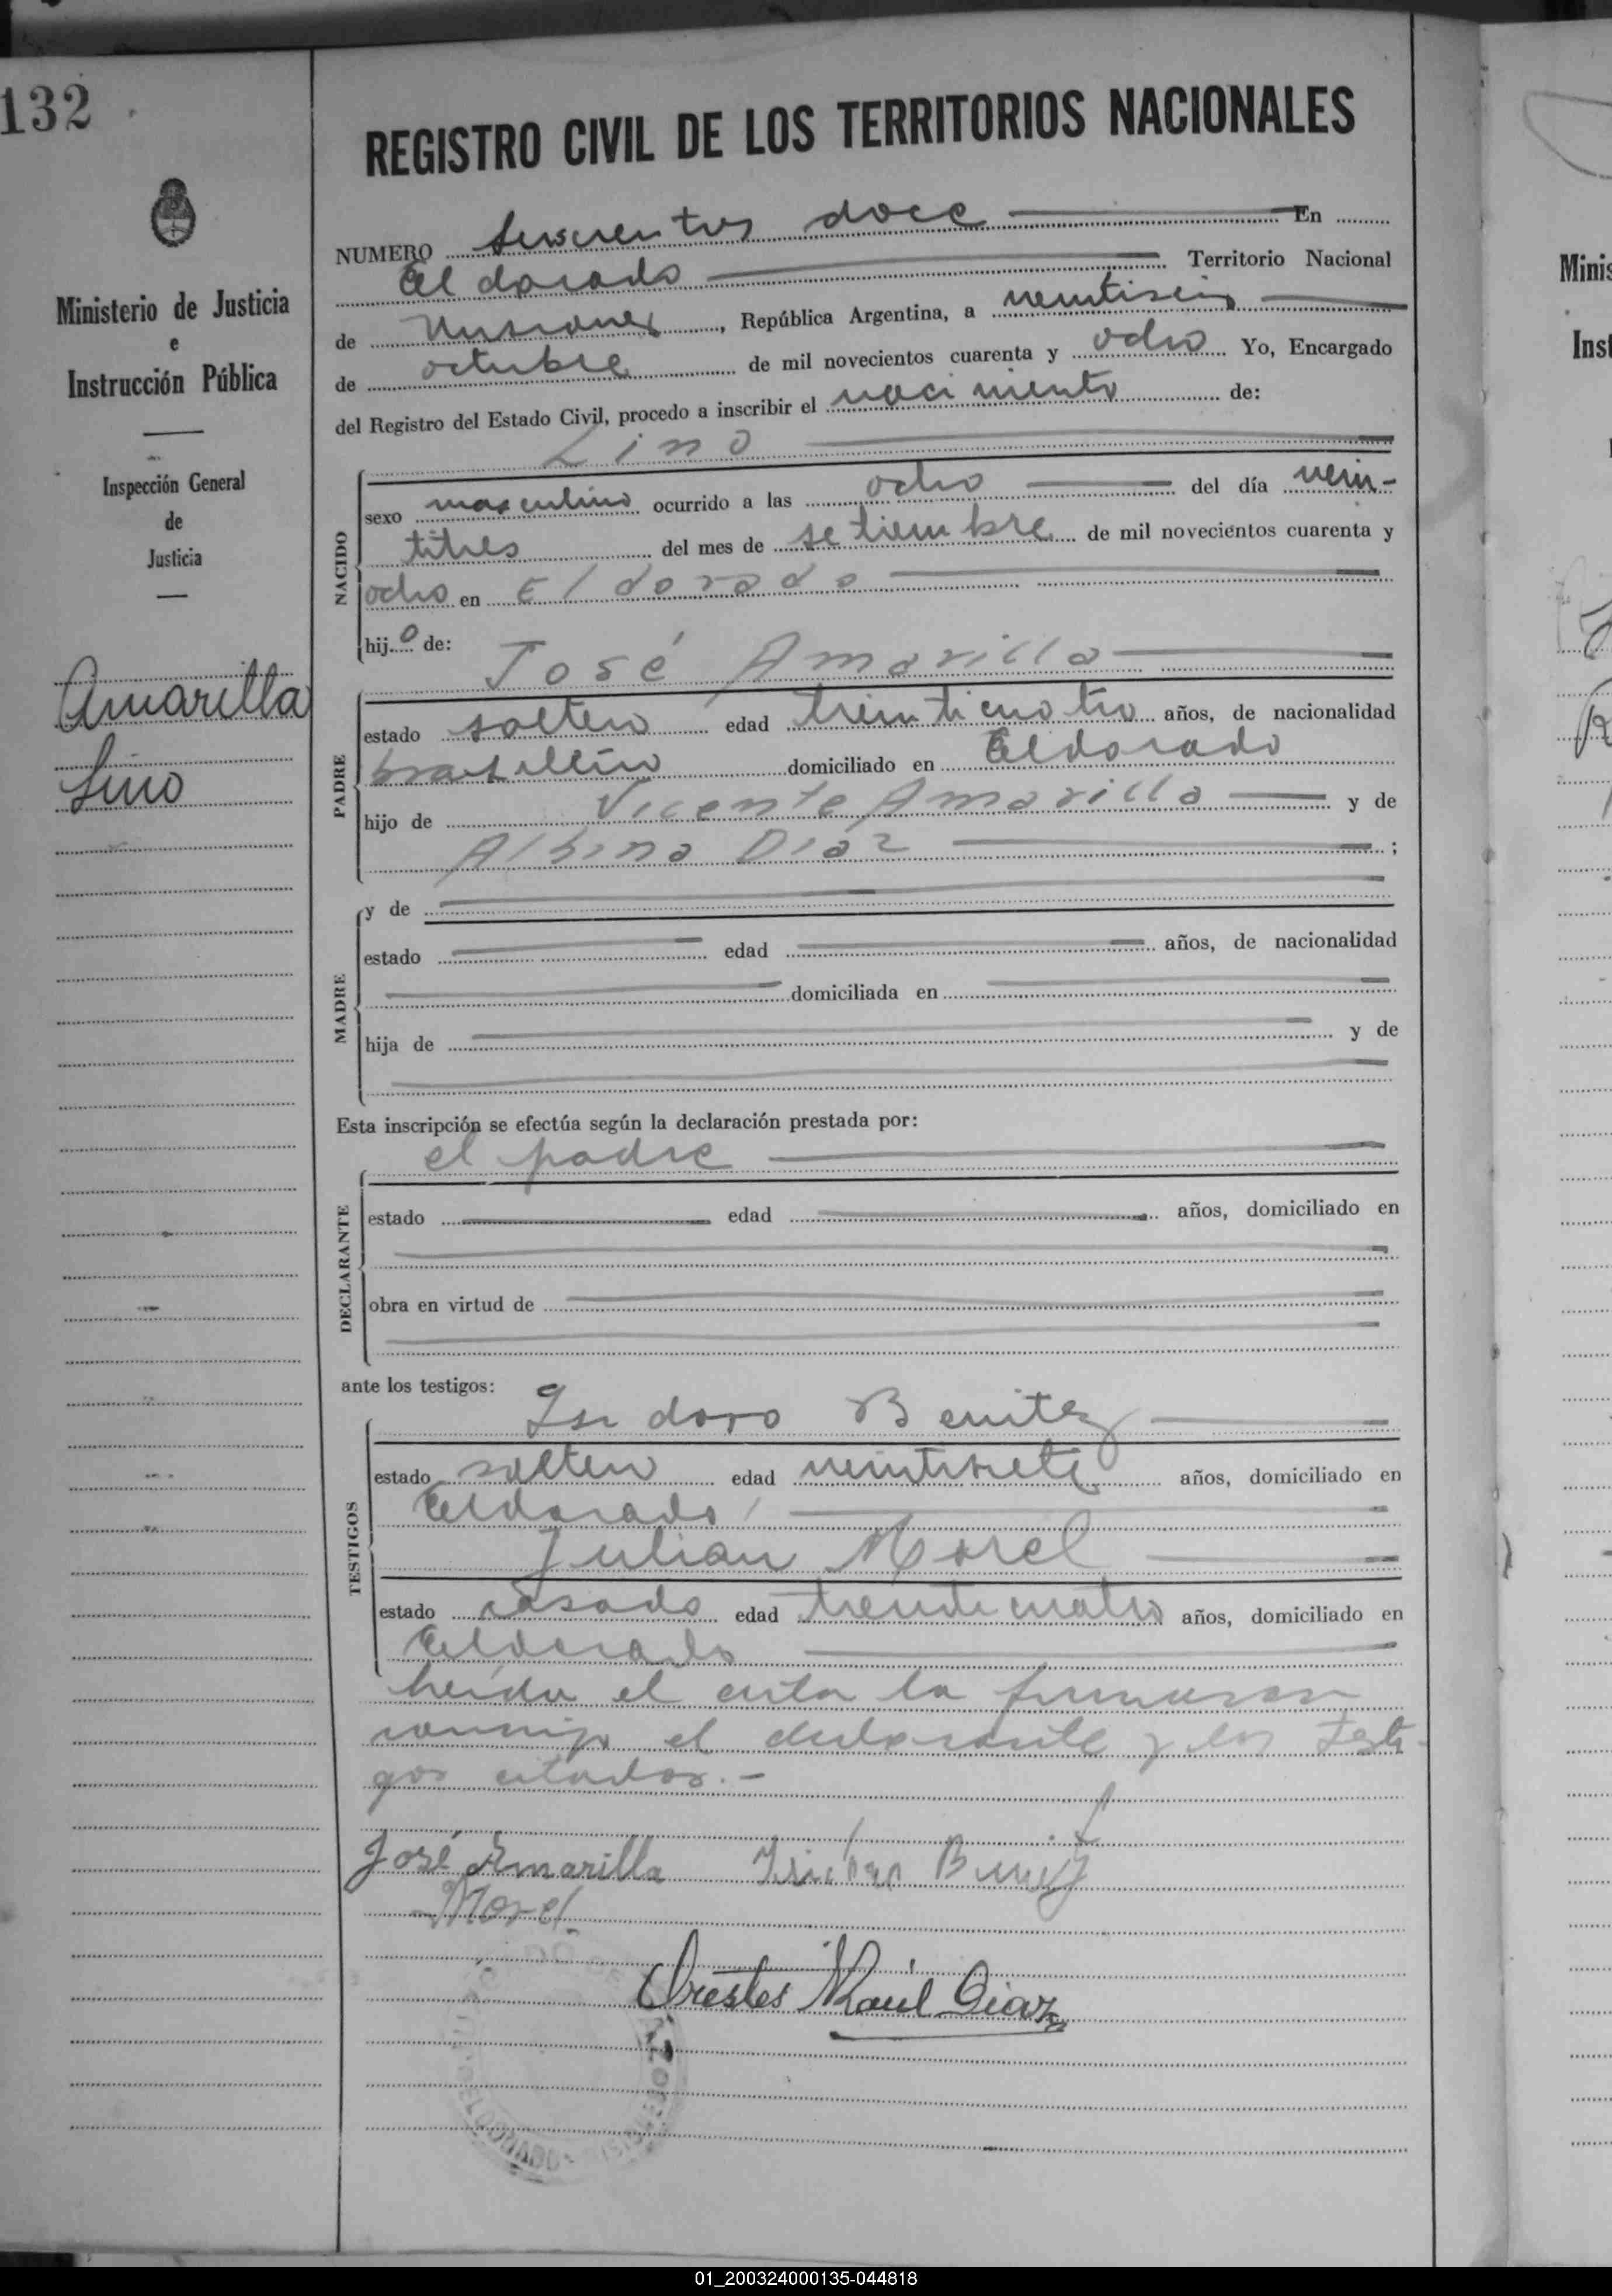 132
REGISTRO CIVIL DE LOS TERRITORIOS NACIONALES
Ministerio de Justicia
e
Instrucción Pública
Inspección General
de
Justicia
Amarilla
Lino
NUMERO doce En
Eldorado Territorio Nacional
de Misiones, República Argentina, a veintiseis
de octubre de mil novecientos cuarenta y ocho Yo, Encargado
del Registro del Estado Civil, procedo a inscribir el nacimiento de:
Lino
NACIDO
sexo masculino ocurrido a las ocho del día vein-
titres del mes de setiembre de mil novecientos cuarenta y
ocho en Eldorado
hijo de:
José Amarilla
PADRE
estado soltero edad treinticuatro años, de nacionalidad
brasilero domiciliado en Eldorado
hijo de Vicente Amarilla y de
Albina Diaz ;
MADRE
y de
estado edad años, de nacionalidad
domiciliada en
hija de y de
Esta inscripción se efectúa según la declaración prestada por:
el padre
DECLARANTE
estado edad años, domiciliado en
obra en virtud de
ante los testigos:
TESTIGOS
Isidoro Benitez
estado soltero edad veintisiete años, domiciliado en
Eldorado
Julian Morel
estado casado edad treinticuatro años, domiciliado en
Eldorado
leída el acta la firmaron
conmigo el declarante y los testi-
gos citados.-
José Amarilla Isidoro Benitez
Morel
Orestes Raúl Diaz
Minis
Inst
01_200324000135-044818